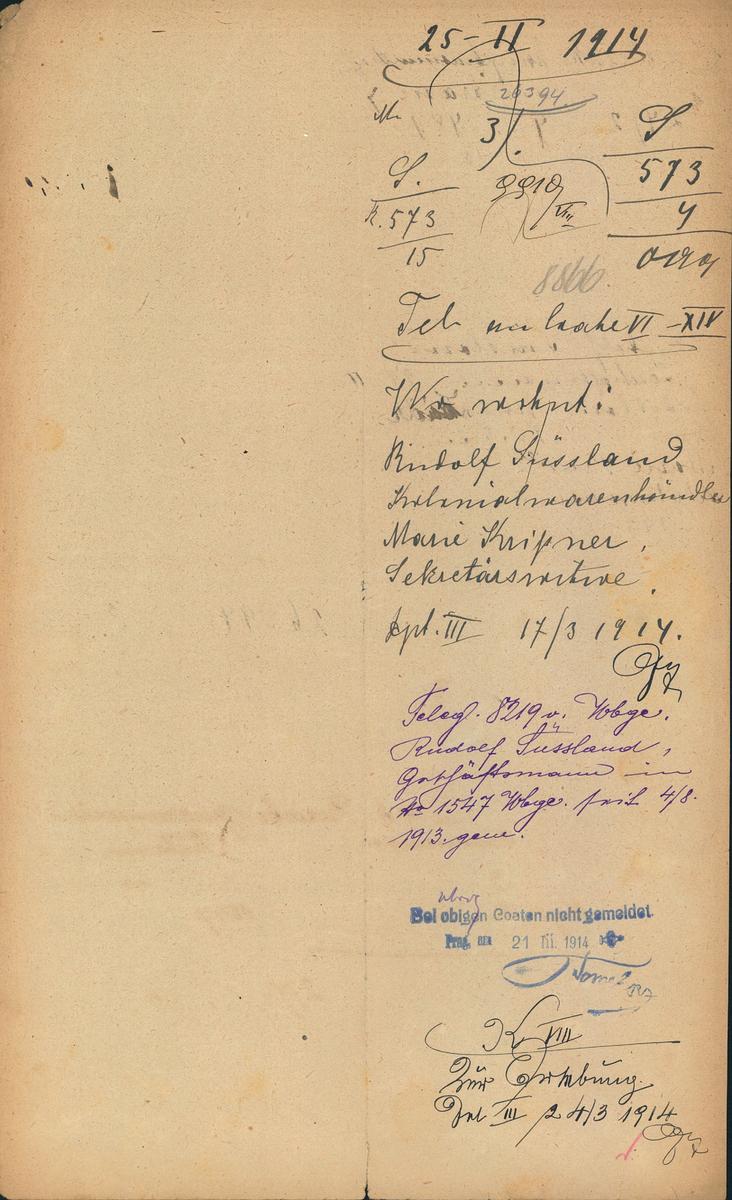 25-II 1914
20394
3/.
S.
K. 573
15
S
573
4
8866
VI-XIV
Wo wohnt:
Rudolf Süssland
Kolonialwarenhändler
Marie Kripner,
Sekretärswitwe,
Dpt. III 17/3 1914.
Telegr. 8219 v. Wbge.
Rudolf Süssland,
Geschäftsmann in
No 1547 Wbge. seit 4/8.
1913. gem.
Bei obigen Coaten nicht gemeldet.
Prag, am 21 III. 1914
K VIII
Zur Erhebung.
Dpt III 24/3 1914